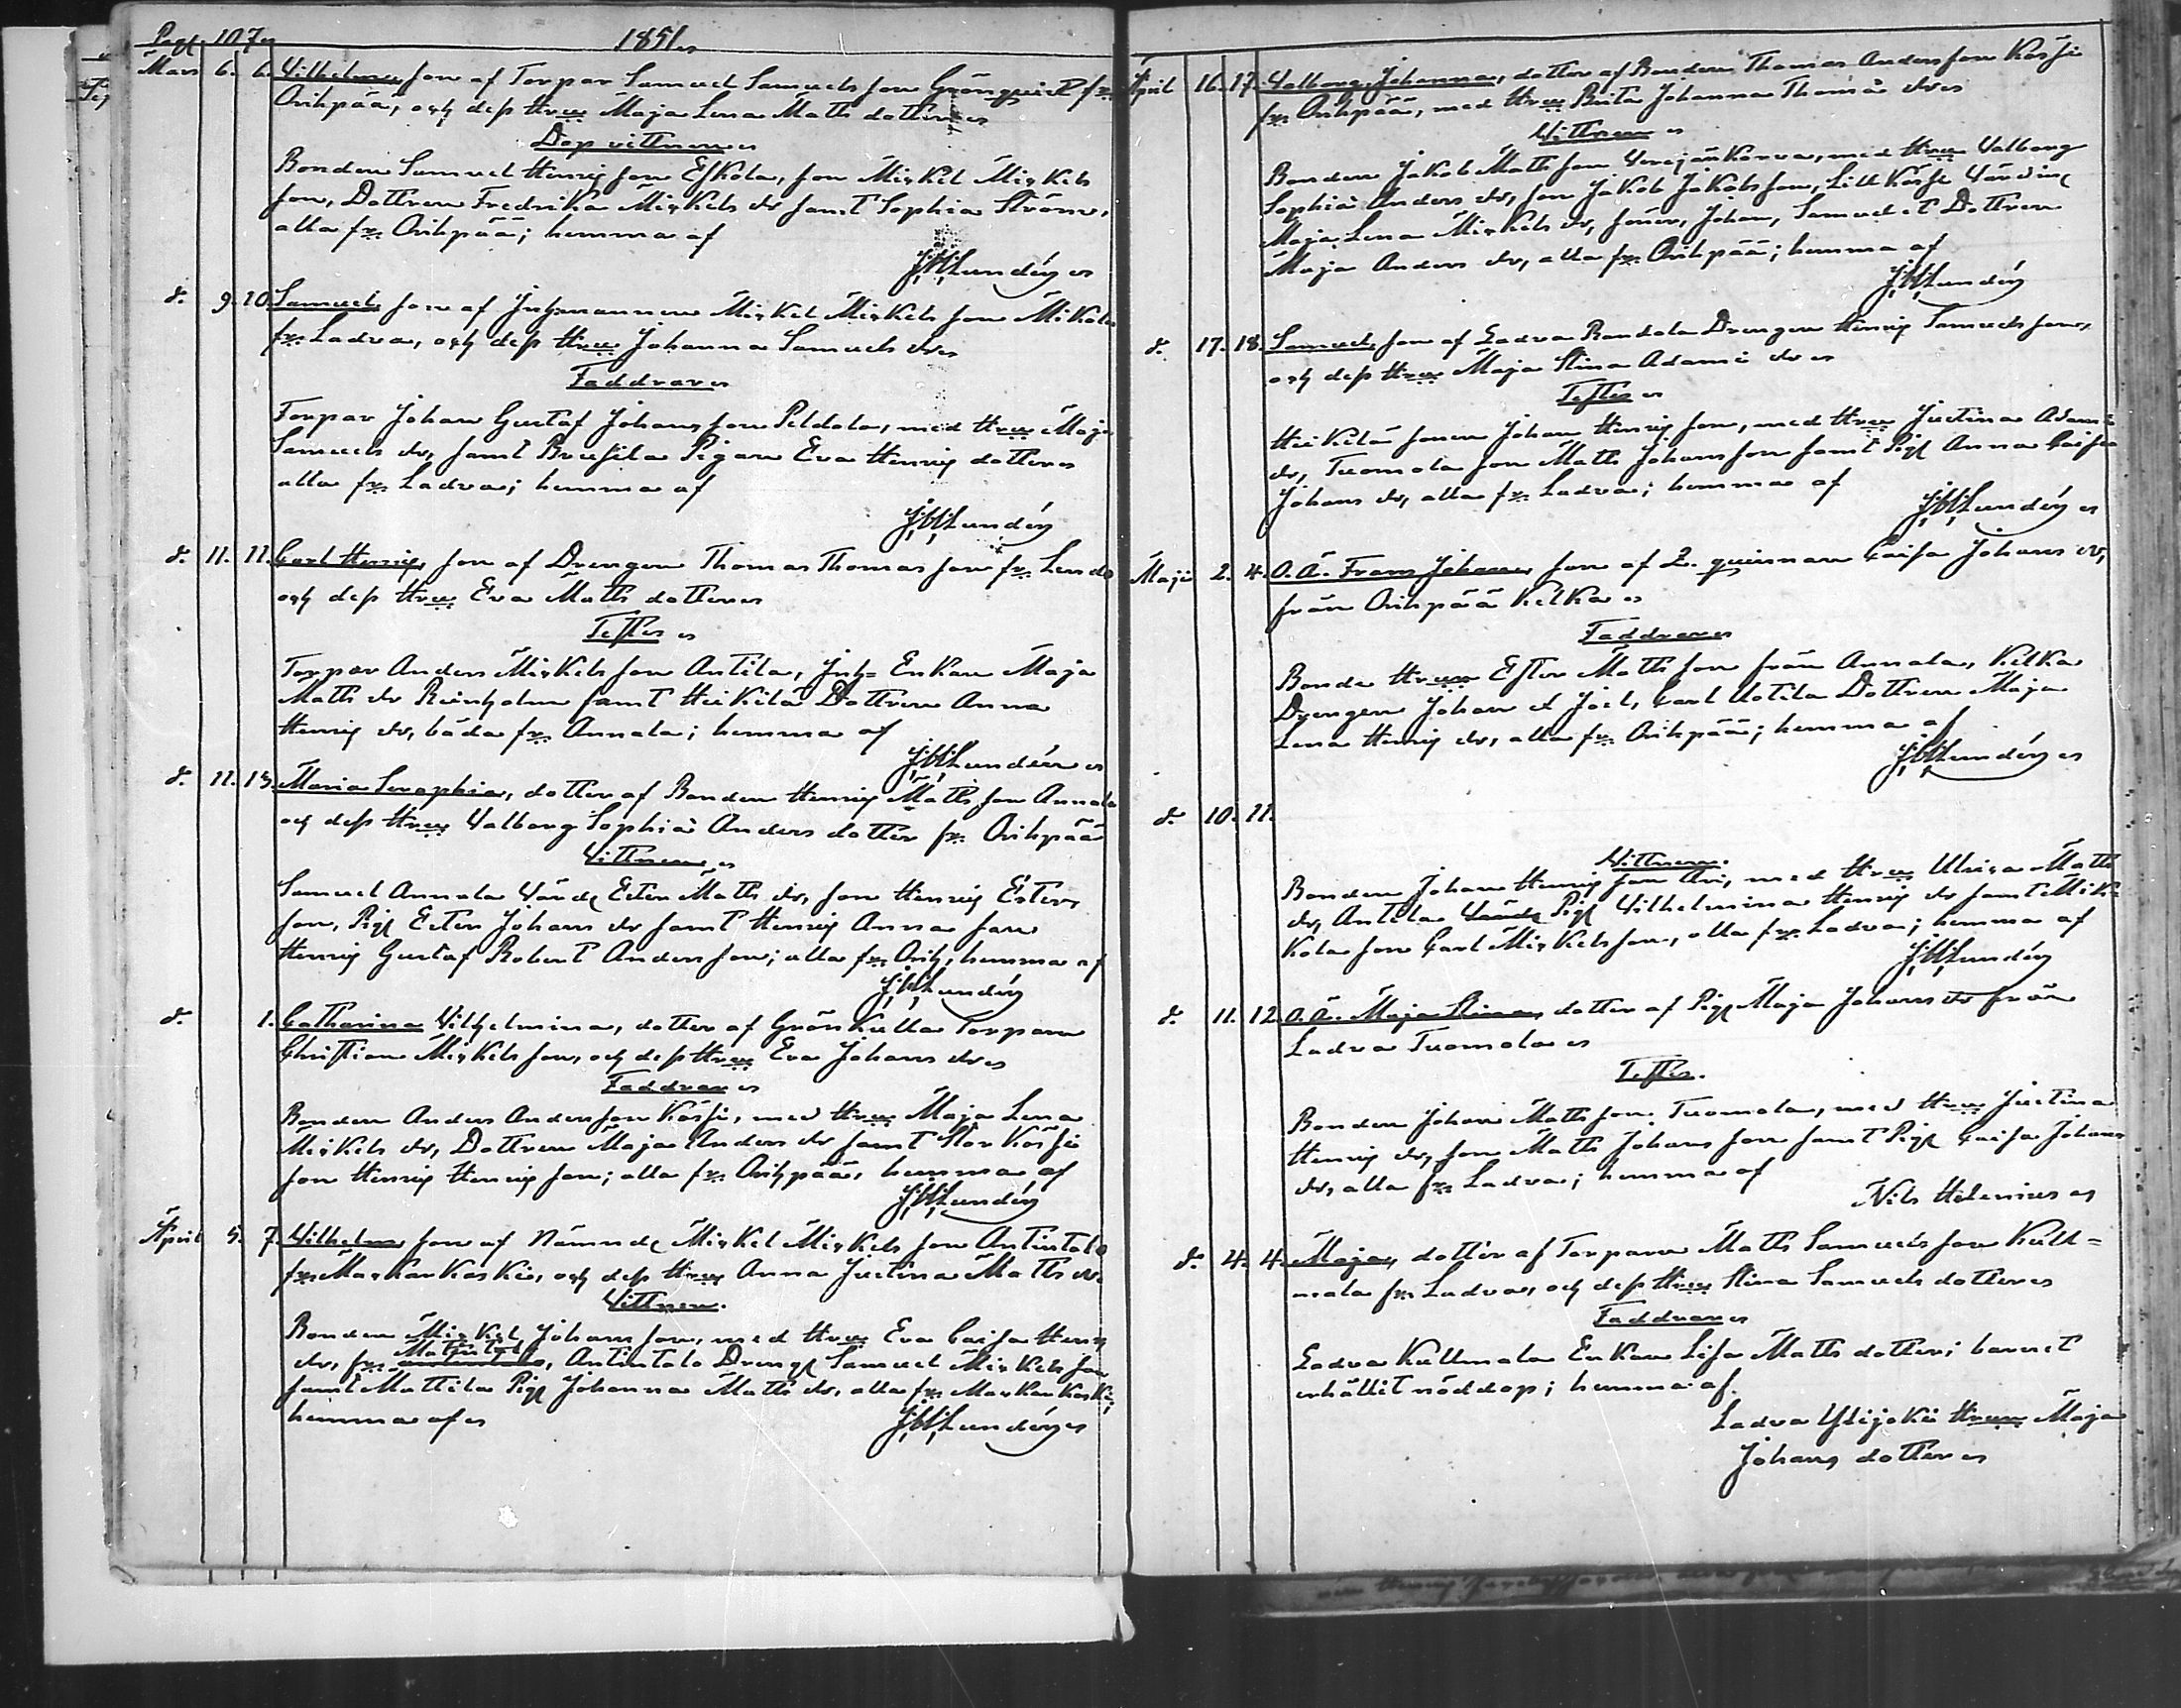 Pag. 107. 1851.
Mars 6. 6. Vilhelm, son af Torpar Samuel Samuels son Grönqvist fr.
Orihpää, och dess Hru Maja Lena Matts dotter
Dop vittnen
Bonden Samuel Henrig son Eskola, son Mickel Mickels
son, Dottren Fredrika Mickels dr samt Sophia Ström,
alla fr. Orihpää; hemma af
J.H. Lundén
d. 9. 10. Samuel, son af Inhmannen Mickel Mickels son Mikola
fr. Ladva, och dess Hru Johanna Samuels dr
Faddrar
Torpar Johan Gustaf Johans son Peldola, med Hru Maja
Samuels dr, samt Pigan Eva Henrig dotter
alla fr. Ladva; hemma af
J.H. Lundén
d. 11. 11. Carl Henrig, son af Drengen Thomas Thomas son fr.
och dess Hru Eva Matts dotter
Testes
Torpar Anders Mickels son Antila, Inh= Enkan Maja
Matts dr Reinholm samt Heikilä Dottren Anna
Henrig dr, båda fr. Annala; hemma af
J.H. Lundén
d. 11. 13. Maria Seraphia, dotter af Bonden Henrig Matts son Annala
och dess Hru Valborg Sophia Anders dotter fr. Orihpää
Vittnen
Samuel Annala Värd Ester Matts dr, son Henrig Esters
son, Pig Ester Johans dr samt Henrig Anna son
Henrig Gustaf Robert Anders son; alla fr. Orih, hemma af
J.H. Lundén
d. 1. Catharina Vilhelmina, dotter af Grönkulla Torparen
Christian Mickels son, och dess Hru Eva Johans dr
Faddrar
Bonden Anders Anders son Kässi, med Hru Maja Lena
Mickels dr, Dottren Maja Anders dr samt Stor Kässi
son Henrig Henrig son; alla fr. Orihpää, hemma af
J.H. Lundén
April 5. 7. Vilhelm, son af Nämnd Mickel Mickels son Antintalo
fr. Markankoski, och dess Hru Anna Justina Matts dr
Vittnen.
Bonden Mickel Johans son, med Hru Eva Caisa Henrig
dr, fr. Matintalo, Antintalo Dreng Samuel Mickels son
samt Mattila Pig Johanna Matts dr, alla fr. Markankoski,
hemma af
J.H. Lundén
April 16. 17. Valborg Johanna, dotter af Bonden Thomas Anders son Kässi
fr. Orihpää, med Hru Brita Johanna Thomæ dr
Vittnen
Bonden Jakob Matts son Verejänkorva, med Hru Valborg
Sophia Anders dr, son Jakob Jakobs son, Lill Kässi Värdin
Maja Lena Mickels dr, söner, Johan, Samuel et Dottren
Maja Anders dr, alla fr. Orihpää; hemma af
J.H. Lundén
d. 17. 18. Samuel, son af Ladva Randala Drengen Henrig Samuels son,
och dess Hru Maja Stina Adami dr
Testes
Heikilä sonen Johan Henrig son, med Hru Justina Adami
dr, Tuomola son Matts Johans son samt Pig Anna Caisa
Johans dr, alla fr. Ladva; hemma af
J.H. Lundén
Maji 2. 4. O.Ä. Frans Johan, son af L. qvinnan Caisa Johans dr,
från Orihpää Kelka
Faddrar
Bonde Hrun Ester Matts son från Annala, Kelka
Drengen Johan et Joel, Carl Uotila Dottren Maja
Lena Henrig dr, alla fr. Orihpää; hemma af
J.H. Lundén
d. 10. 11.
Vittnen.
Bonden Johan Henrig son Ori, med Hru Ulrica Matts
dr, Antila Pig Vilhelmina Henrig dr samt Mik=
kola son Carl Mickels son, alla fr. Ladva; hemma af
J.H. Lundén
d. 11. 12. O.Ä. Maja Stina, dotter af Pig Maja Johans dr från
Ladva Tuomola
Testes.
Bonden Johan Matts son Tuomola, med Hru Justina
Henrig dr, son Matts Johans son samt Pig Caisa Johans
dr, alla fr. Ladva; hemma af
Nils Helenius
d. 4. 4. Maja, dotter af Torparen Matts Samuels son Kull=
mala fr. Ladva, och dess Hru Stina Samuels dotter
Faddrar
Ladva Kullmala Enkan Lisa Matts dotter; barnet
erhållit nöddop; hemma af.
Ladva Ylijoki Hrun Maja
Johans dotter